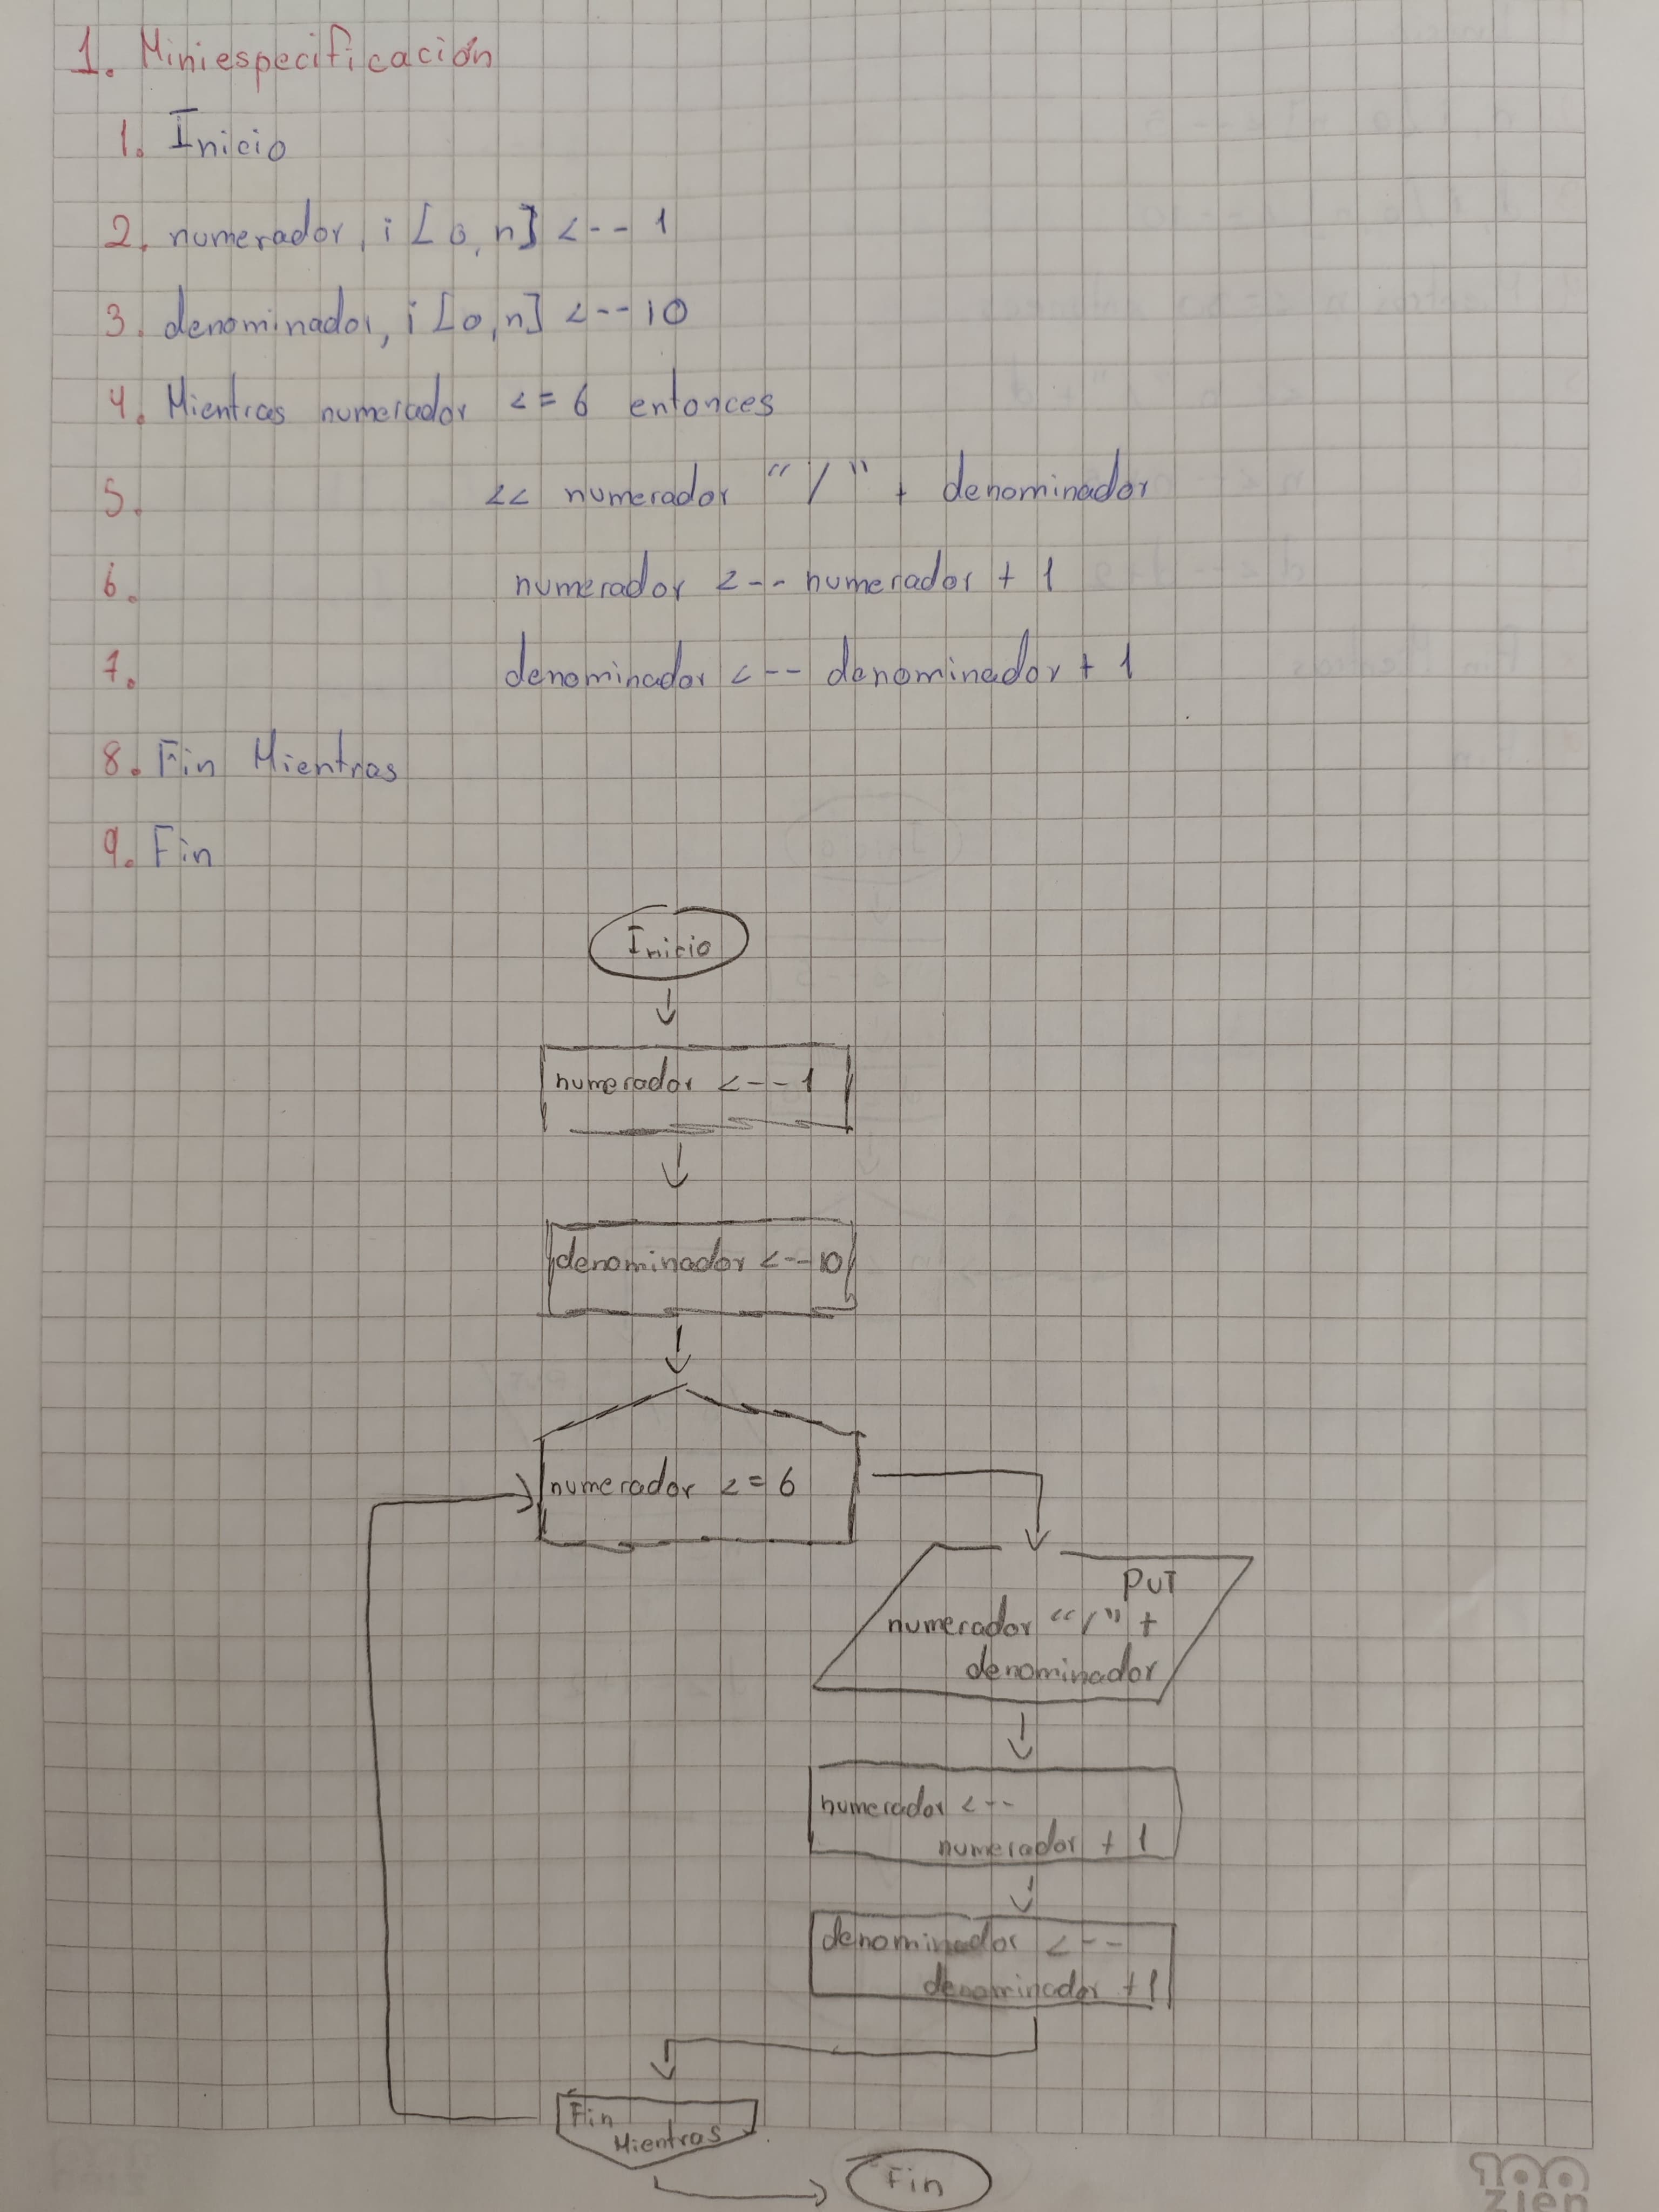 1. Miniespecificación
1. Inicio
2. numerador, i [0, n] <-- 1
3. denominador, i [0, n] <-- 10
4. Mientras numerador <= 6 entonces
5. << numerador "/" + denominador
6. numerador <-- numerador + 1
7. denominador <-- denominador + 1
8. Fin Mientras
9. Fin
Inicio
numerador <-- 1
denominador <-- 10
numerador <= 6
PUT
numerador "/" +
denominador
numerador <--
numerador + 1
denominador <--
denominador + 1
Fin
Mientras
Fin
100
zien